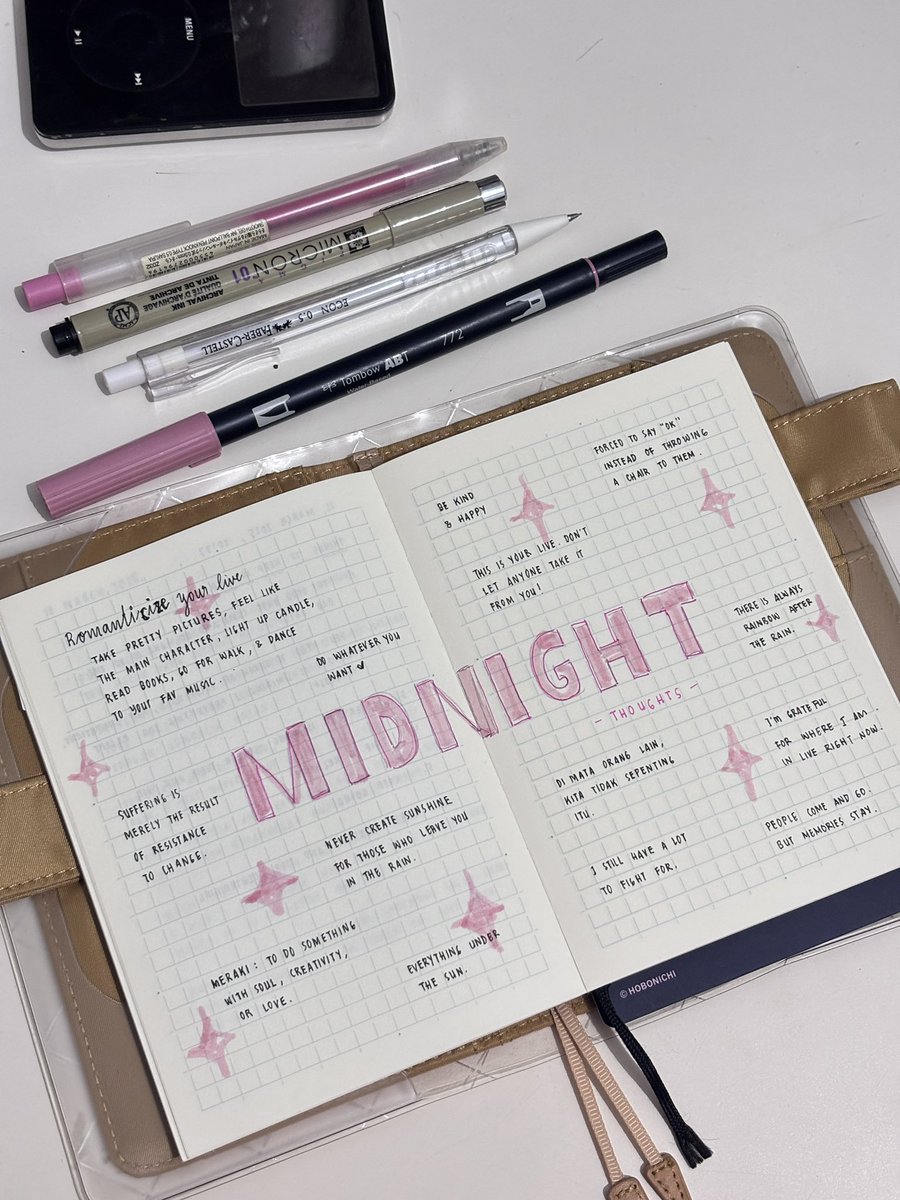 MENU
SMOOTH GEL INK BALLPOINT PEN KNOCK TYPE 0.5 SAKURA
MADE IN JAPAN
MICRON 01
ARCHIVAL INK
QUALITÉ D'ARCHIVAGE
TINTA DE ARCHIVE
AP
ECON 0.5 FABER-CASTELL
Tombow ABT
Water-Based
772
Romanticize your live
TAKE PRETTY PICTURES, FEEL LIKE
THE MAIN CHARACTER, LIGHT UP CANDLE,
READ BOOKS, GO FOR WALK, & DANCE
TO YOUR FAV MUSIC.
DO WHATEVER YOU
WANT
MIDNIGHT
- THOUGHTS -
SUFFERING IS
MERELY THE RESULT
OF RESISTANCE
TO CHANGE.
NEVER CREATE SUNSHINE
FOR THOSE WHO LEAVE YOU
IN THE RAIN.
MERAKI : TO DO SOMETHING
WITH SOUL, CREATIVITY,
OR LOVE.
EVERYTHING UNDER
THE SUN.
BE KIND
& HAPPY
FORCED TO SAY "OK"
INSTEAD OF THROWING
A CHAIR TO THEM.
THIS IS YOUR LIVE. DON'T
LET ANYONE TAKE IT
FROM YOU!
THERE IS ALWAYS
RAINBOW AFTER
THE RAIN.
I'M GRATEFUL
FOR WHERE I AM
IN LIVE RIGHT NOW.
DI MATA ORANG LAIN,
KITA TIDAK SEPENTING
ITU.
PEOPLE COME AND GO.
BUT MEMORIES STAY.
I STILL HAVE A LOT
TO FIGHT FOR.
© HOBONICHI